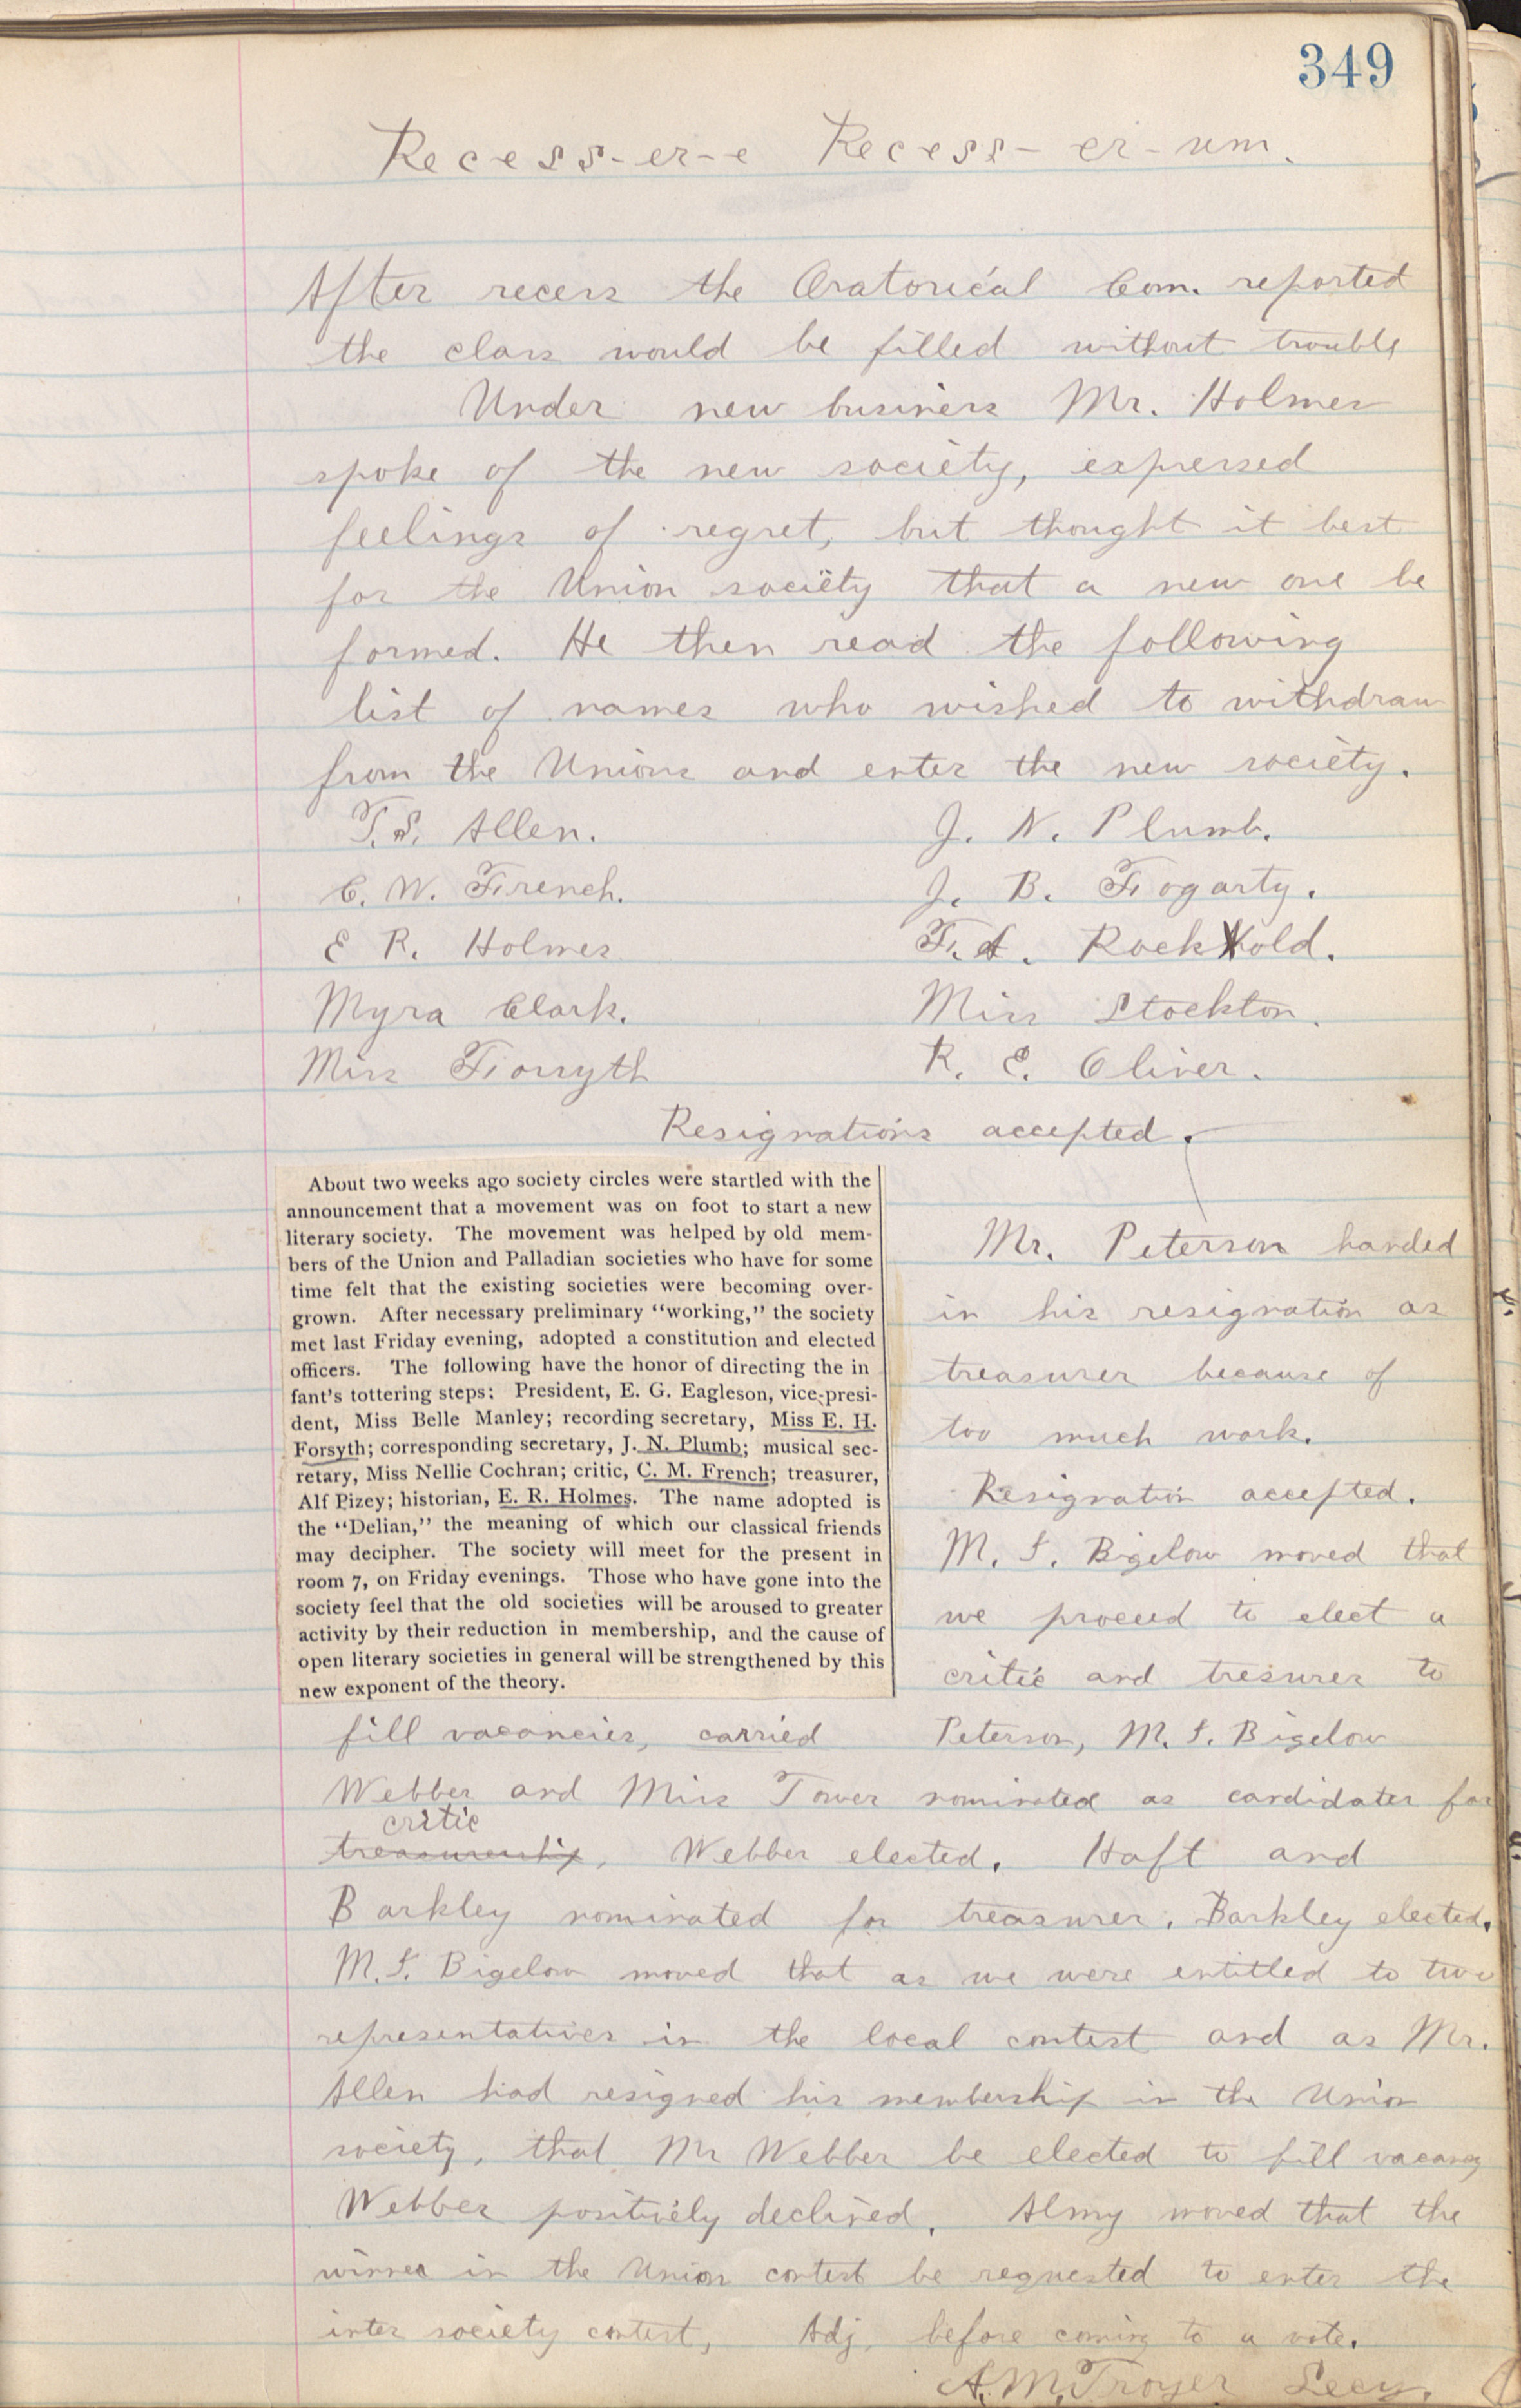 349
Recess-er-e Recess-er-um.
After recess the Oratorical Com. reported
the class would be filled without trouble
Under new business Mr. Holmes
spoke of the new society, expressed
feelings of regret, but thought it best
for the Union society that a new one be
formed. He then read the following
list of names who wished to withdraw
from the Unions and enter the new society.
T. S. Allen. J. N. Plumb.
C. W. French. J. B. Fogarty.
E R. Holmes F. A. Rockhold.
Myra Clark. Miss Stockton.
Miss Forsyth R. E. Oliver.
Resignations accepted.
About two weeks ago society circles were startled with the
announcement that a movement was on foot to start a new
literary society. The movement was helped by old mem-
bers of the Union and Palladian societies who have for some
time felt that the existing societies were becoming over-
grown. After necessary preliminary "working," the society
met last Friday evening, adopted a constitution and elected
officers. The following have the honor of directing the in
fant's tottering steps: President, E. G. Eagleson, vice-presi-
dent, Miss Belle Manley; recording secretary, Miss E. H.
Forsyth; corresponding secretary, J. N. Plumb; musical sec-
retary, Miss Nellie Cochran; critic, C. M. French; treasurer,
Alf Pizey; historian, E. R. Holmes. The name adopted is
the "Delian," the meaning of which our classical friends
may decipher. The society will meet for the present in
room 7, on Friday evenings. Those who have gone into the
society feel that the old societies will be aroused to greater
activity by their reduction in membership, and the cause of
open literary societies in general will be strengthened by this
new exponent of the theory.
Mr. Peterson handed
in his resignation as
treasurer because of
too much work.
Resignation accepted.
M. S. Bigelow moved that
we proceed to elect a
critic and tresurer to
fill vacancies, carried Peterson, M. S. Bigelow
Webber and Miss Tower nominated as candidates for
critic
treasurership, Webber elected. Haft and
Barkley nominated for treasurer. Barkley elected.
M. S. Bigelow moved that as we were entitled to two
representatives in the local contest and as Mr.
Allen had resigned his membership in the Union
society, that Mr Webber be elected to fill vacancy
Webber positively declined. Almy moved that the
winner in the Union contest be requested to enter the
inter society contest, Adj. before coming to a vote.
A. M. Troyer Secy.